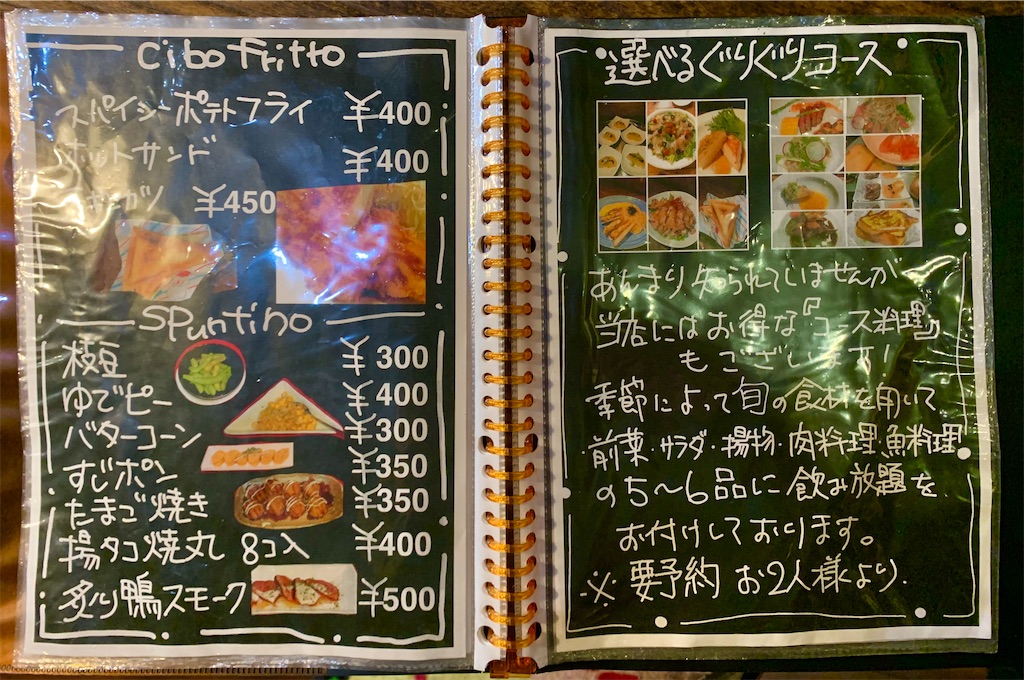 Cibo Fritto
スパイシーポテトフライ ¥400
ホットサンド ¥400
ガツ ¥450
Spuntino
枝豆 ¥300
ゆでピー ¥400
バターコーン ¥300
すじポン ¥350
たまご焼き ¥350
揚タコ焼丸 8コ入 ¥400
炙り鴨スモーク ¥500
選べるぐりぐりコース
あんまり知られていませんが
当店にはお得な『コース料理』
もございます!
季節によって旬の食材を用いて、
前菜・サラダ・揚物・肉料理・魚料理
の5〜6品に飲み放題を
お付けしております。
※要予約 お2人様より.